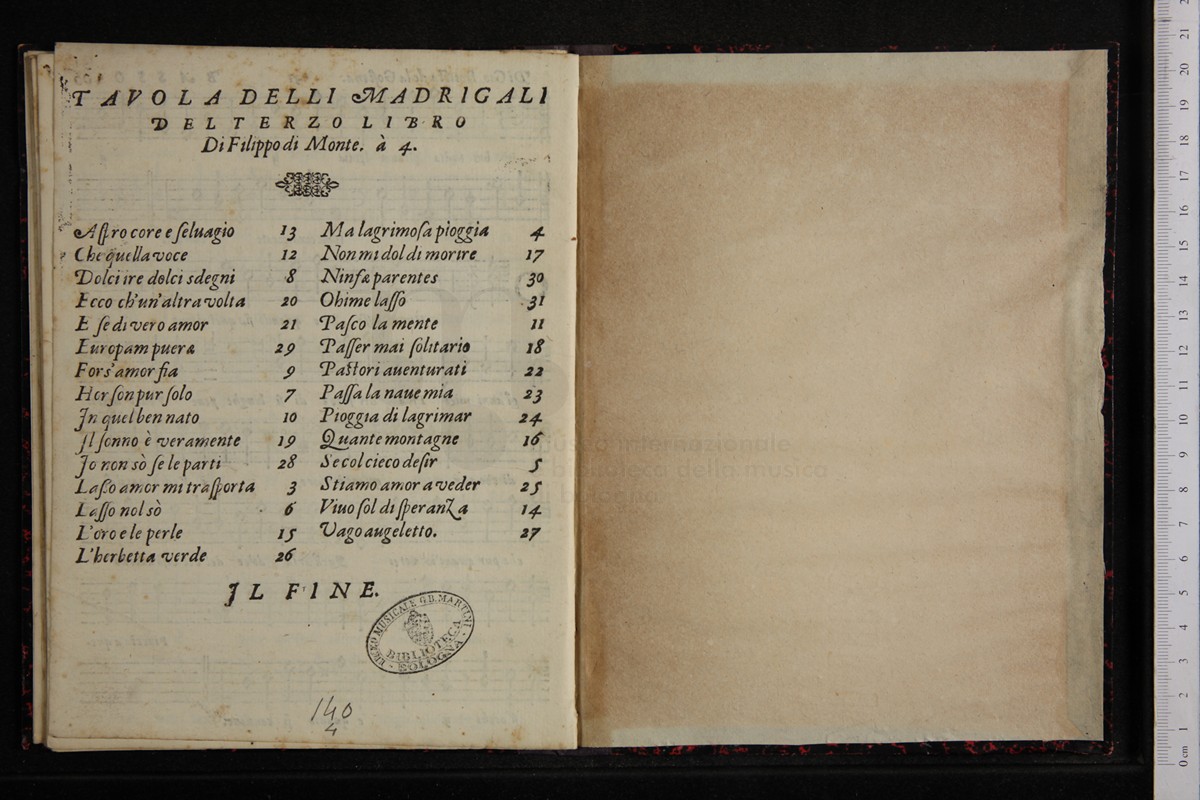 TAVOLA DELLI MADRIGALI
DEL TERZO LIBRO
Di Filippo di Monte. à 4.
Aſpro core e ſeluagio 13
Che quella voce 12
Dolci ire dolci sdegni 8
Ecco ch'un'altra volta 20
E ſe di vero amor 21
Europam puera 29
Fors'amor fia 9
Hor ſon pur ſolo 7
In quel ben nato 10
Il ſonno è veramente 19
Io non sò ſe le parti 28
Laſſo amor mi traſporta 3
Laſſo nol sò 6
L'oro e le perle 15
L'herbetta verde 26
Ma lagrimoſa pioggia 4
Non mi dol di morire 17
Ninfæ parentes 30
Ohime laſſo 31
Paſco la mente 11
Paſſer mai ſolitario 18
Paſtori auenturati 22
Paſſa la naue mia 23
Pioggia di lagrimar 24
Quante montagne 16
Se col cieco deſir 5
Stiamo amor a veder 25
Viuo ſol di ſperanza 14
Vago augeletto. 27
IL FINE.
LICEO MUSICALE G.B. MARTINI
BIBLIOTECA
BOLOGNA
140
4
museo internazionale
e biblioteca della musica
di bologna
0 cm 1 2 3 4 5 6 7 8 9 10 11 12 13 14 15 16 17 18 19 20 21